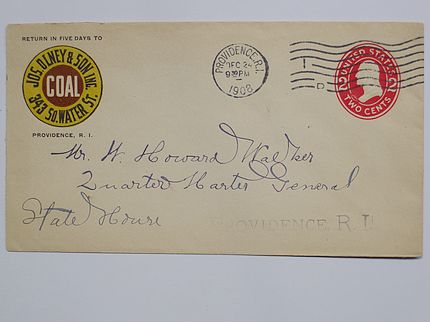 RETURN IN FIVE DAYS TO
JOS. OLNEY & SON, INC.
COAL
343 SO. WATER ST.
PROVIDENCE, R. I.
PROVIDENCE, R.I.
DEC 24
9 30 PM
1908
1
D
UNITED STATES
2 2
TWO CENTS
Mr. W. Howard Walker
Quarter Master General
State House
PROVIDENCE, R. I.